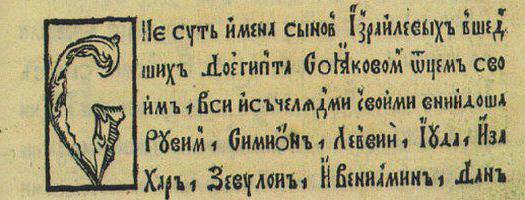 Сие суть имена сынов Ізраилевых вшед
ших доегипта Соиаковом ѿцем сво
им, вси исъчелядми своими внийдоша
Рувим, Симиѡн, Леввий, Іуда, Иза
харъ, Зевулон, и Вениамин, Дан